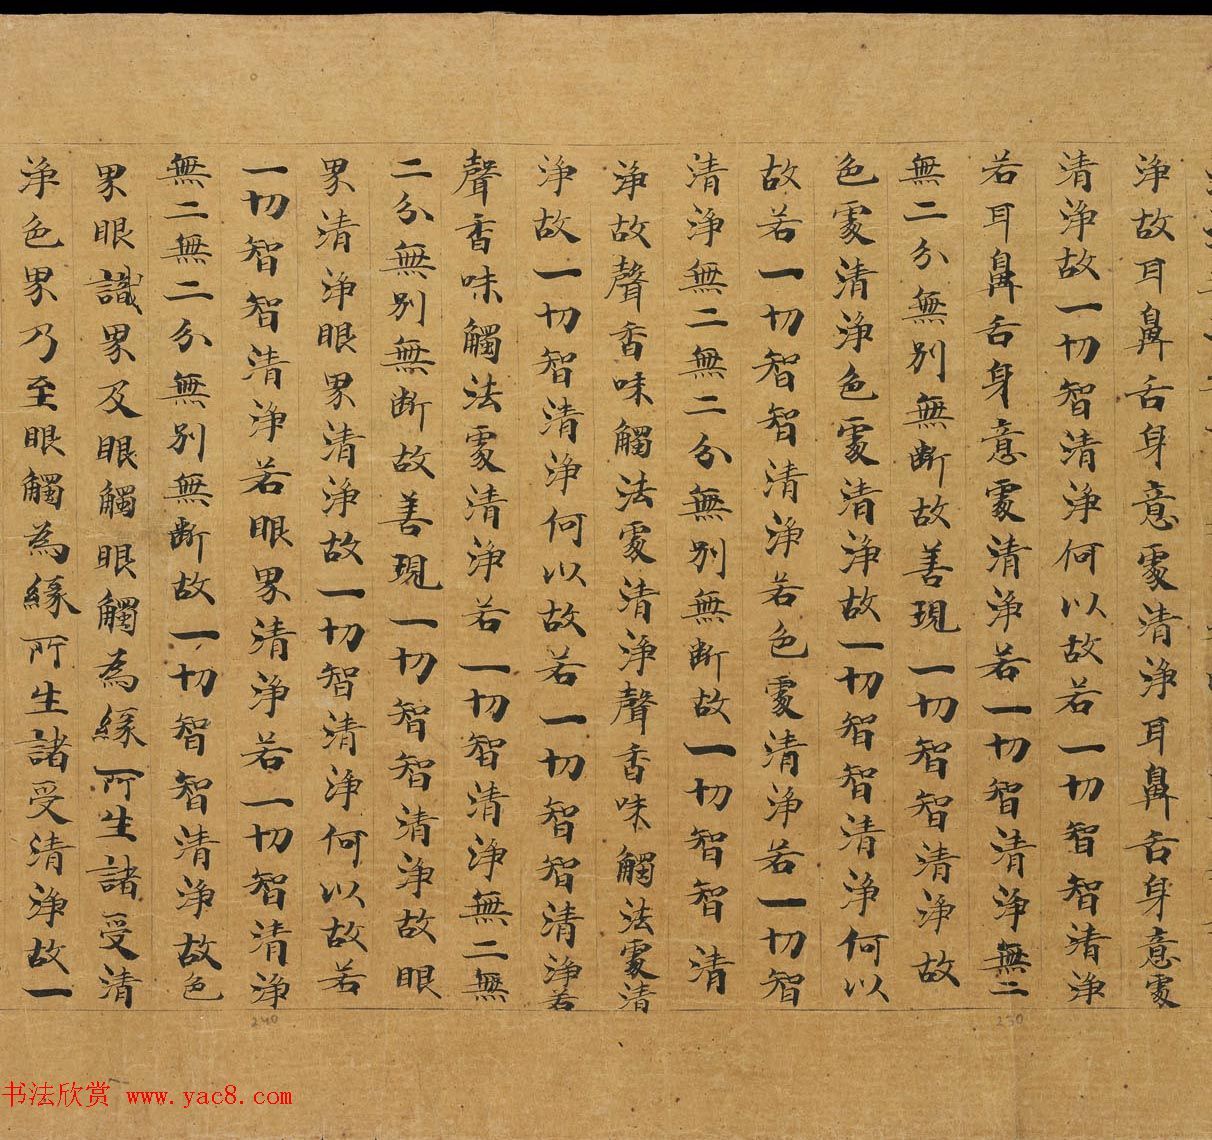 浄故耳鼻舌身意處清浄耳鼻舌身意處
清浄故一切智清浄何以故若一切智智清浄
若耳鼻舌身意處清浄若一切智清浄無二
無二分無別無断故善現一切智智清浄故
色處清浄色處清浄故一切智智清浄何以
故若一切智智清浄若色處清浄若一切智
清浄無二無二分無別無断故一切智智清
浄故聲香味觸法處清浄聲香味觸法處清
浄故一切智清浄何以故若一切智智清浄若
聲香味觸法處清浄若一切智清浄無二無
二分無別無断故善現一切智智清浄故眼
界清浄眼界清浄故一切智清浄何以故若
一切智智清浄若眼界清浄若一切智清浄
無二無二分無別無断故一切智智清浄故色
界眼識界及眼觸眼觸為緣所生諸受清
浄色界乃至眼觸為緣所生諸受清浄故一
230
240
书法欣赏 www.yac8.com